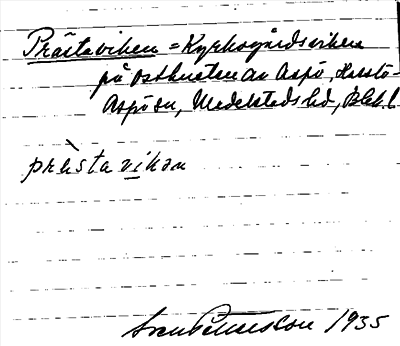 Prästaviken = Kyrkogårdsviken
på ostkusten av Aspö, Hasslö-
Aspö sn, Medelstads hd, Blek. l.
prḕstavikən
Sven Pettersson 1935